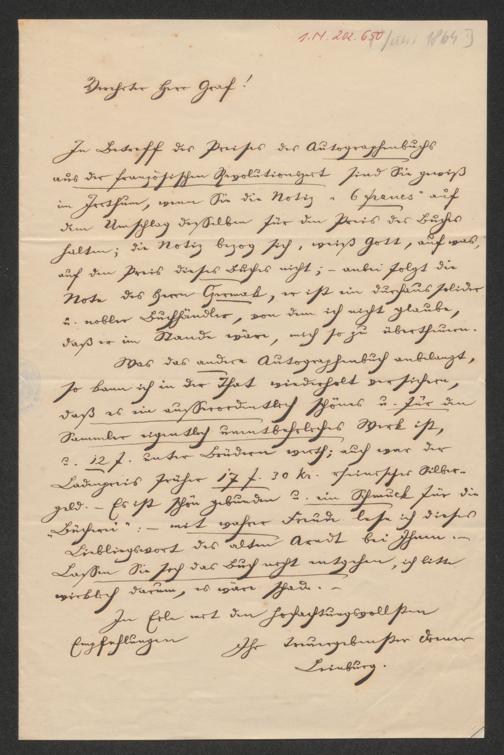 I.N. 202.650
Juni 1864
Verehrter Herr Graf!
In Betreff des Preises des Autographenbuchs
aus der französischen Revolutionszeit sind Sie gewiß
im Irrthum, wenn Sie die Notiz „6 francs" auf
dem Umschlag desselben für den Preis des Buches
halten; die Notiz bezog sich, weiß Gott, auf was,
auf den Preis dieses Buches nicht; – anbei folgt die
Note des Herrn, er ist ein durchaus solider
u. nobler Buchhändler, von dem ich nicht glaube,
daß er im Stande wäre, mich so zu übertheuern.
Was das andere Autographenbuch anbelangt,
so kann ich in der That wiederholt versichern,
daß es ein außerordentlich schönes u. für den
Sammler eigentlich unentbehrliches Werk ist,
u. 12 f. unter Brüdern werth; auch war der
Ladenpreis früher 17 f. 30 kr. rheinisches Silber-
geld. – Es ist schön gebunden u. ein Schmuck für die
„Bücherei": – mit wahrer Freude lese ich dieses
Lieblingswort des alten Arndt bei Ihnen. –
Lassen Sie sich das Buch nicht entgehen, ich bitte
wirklich darum, es wäre schade. –
In Eile mit den hochachtungsvollsten
Empfehlungen Ihr treuergebenster Diener
Leinburg.